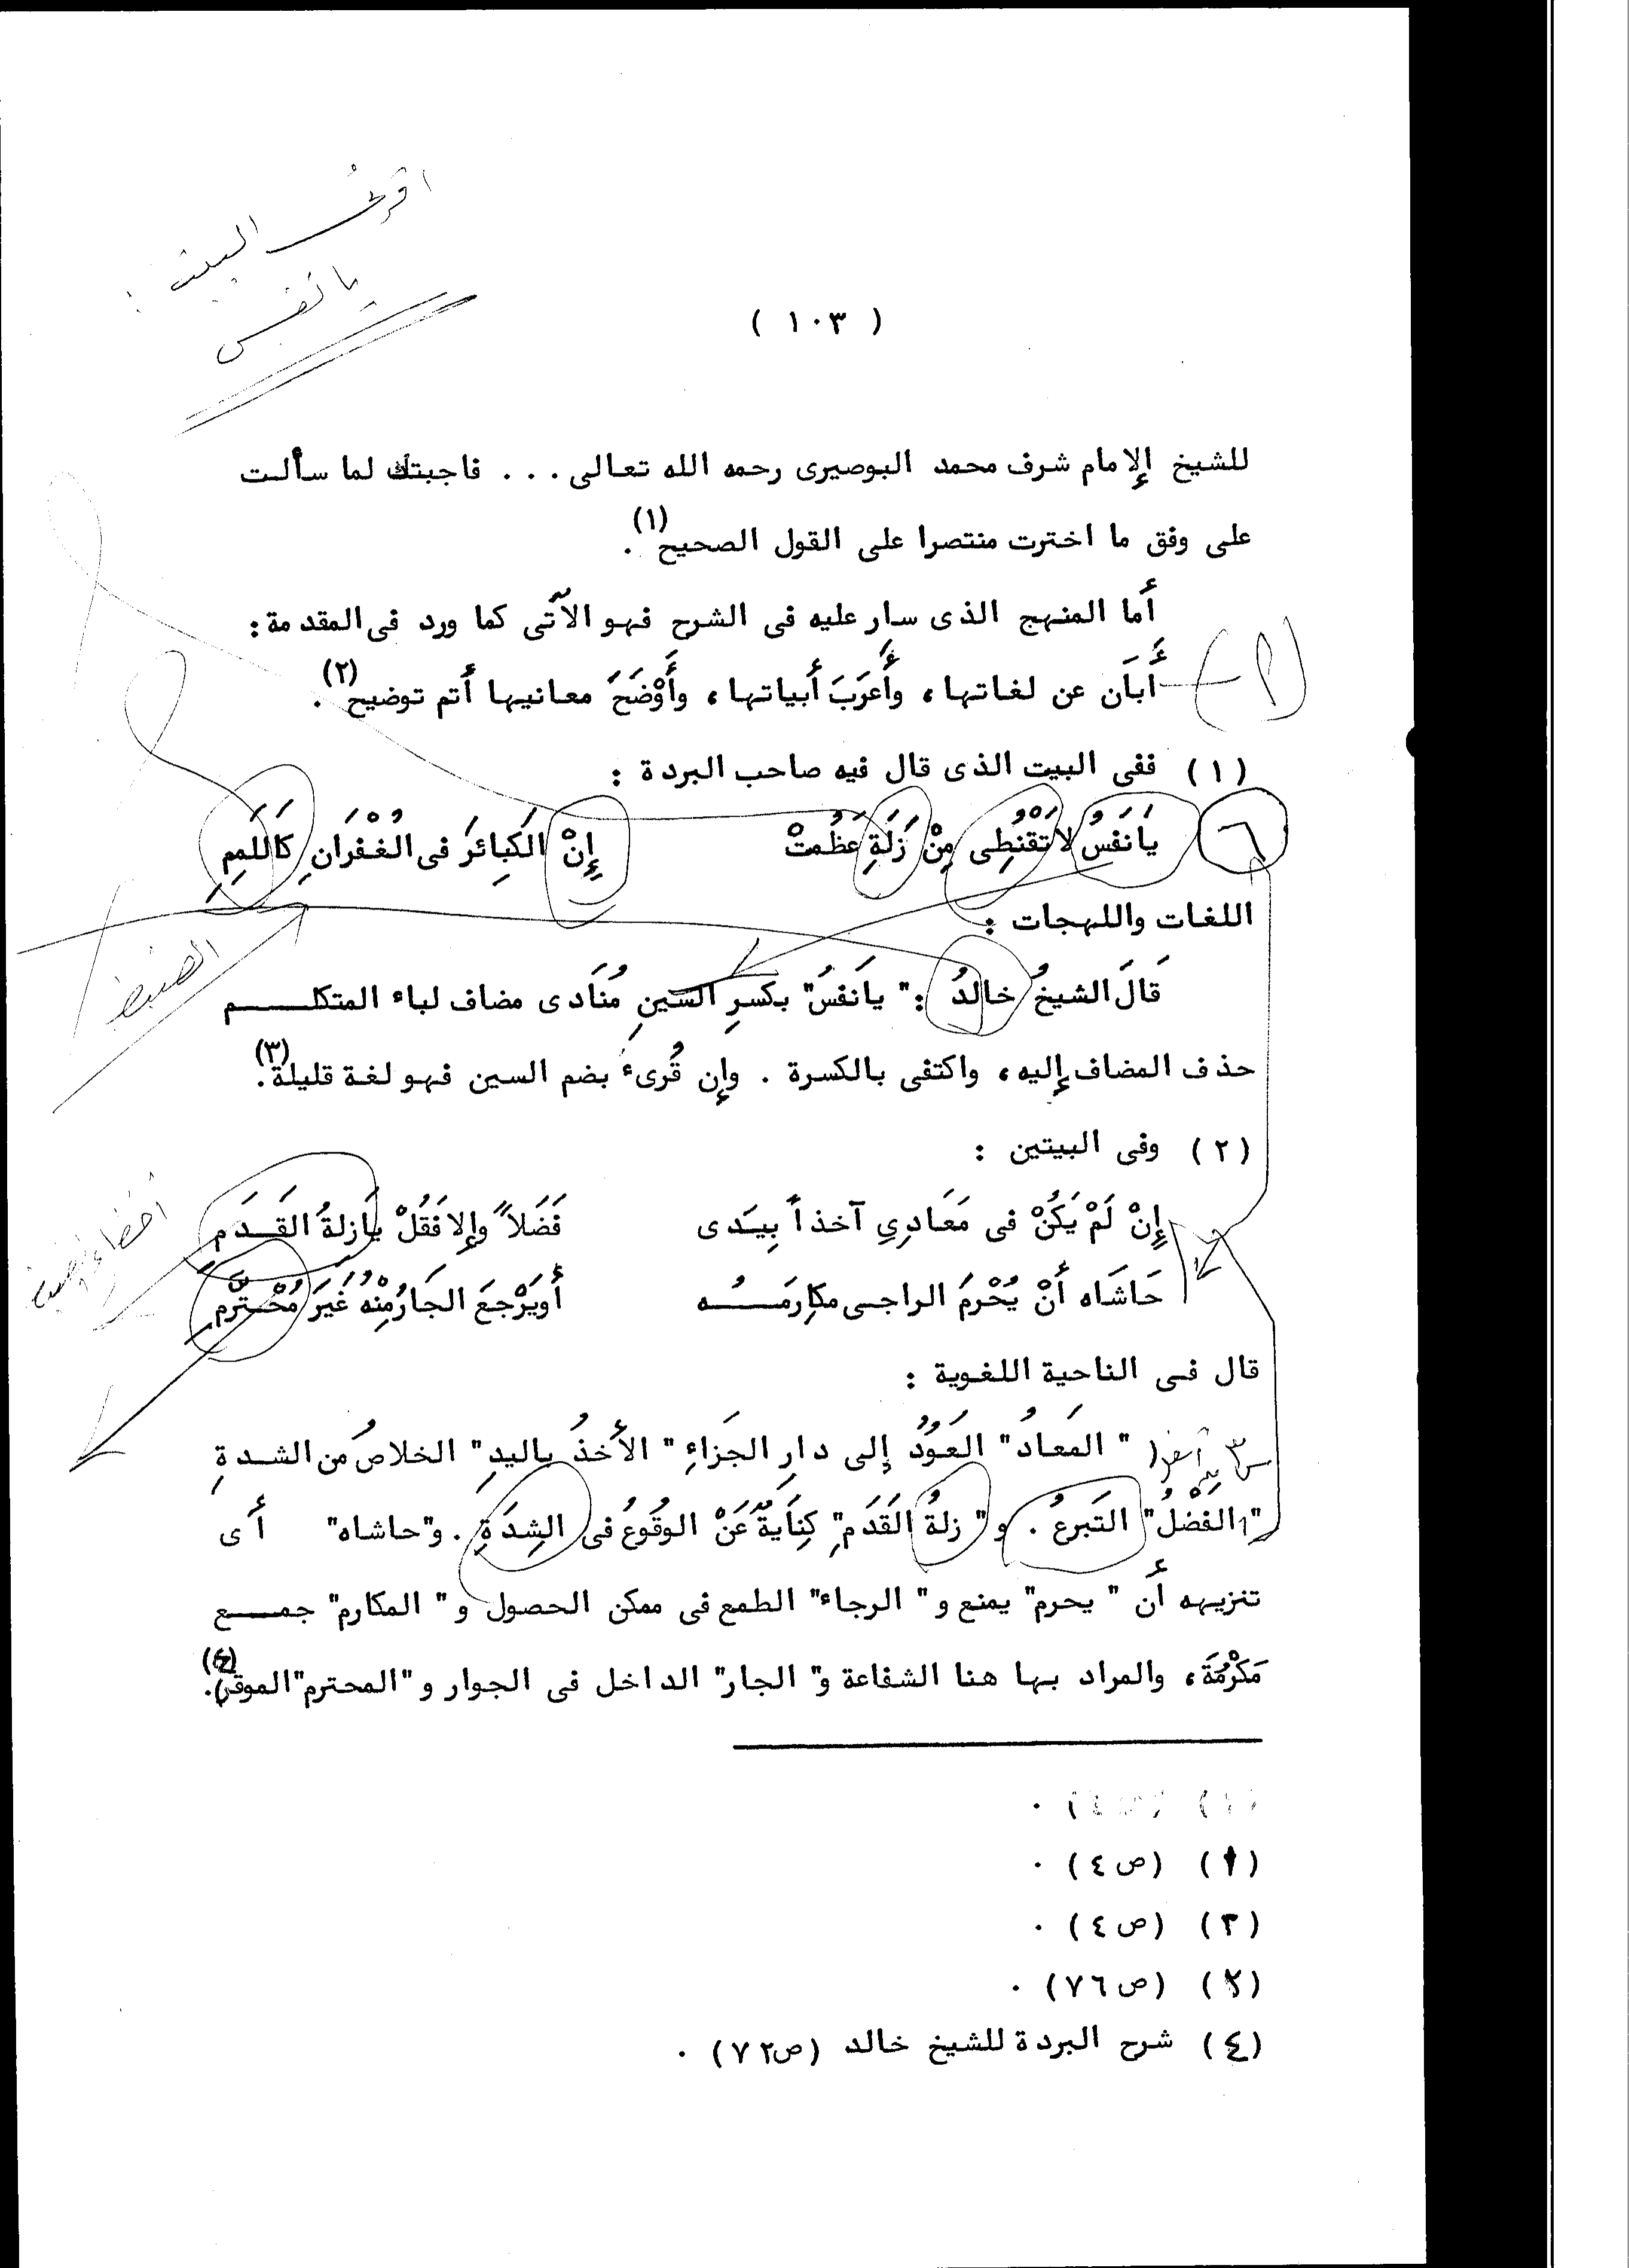 البيت :
يا نفس
( ١٠٣ )
للشيخ الإمام شرف محمد البوصيرى رحمه الله تعالى . . . فاجبتك لما سألت
على وفق ما اخترت منتصرا على القول الصحيح (١) .
أما المنهج الذى سار عليه فى الشرح فهو الآتى كما ورد فى المقدمة :
أَبَان عن لغاتها ، وأَعرَبَ أبياتها ، وأَوْضَحَ معانيها أتم توضيح (٢) .
(١) ففى البيت الذى قال فيه صاحب البردة :
يَا نَفسُ لا تَقْنُطِى مِنْ زَلَةِ عَظُمتْ إِنْ الكَبِائرَ فى الغُفْرَانِ كَاللَممِ
اللغات واللهجات :
قَالَ الشيخُ خالدُ : " يا نَفسُ " بكسرِ السينِ مُنَادى مضاف لياء المتكلم
حذف المضاف إليه ، واكتفى بالكسرة . وإن قُرىء بضم السين فهو لغة قليلة (٣) .
(٢) وفى البيتين :
إِنْ لَمْ يَكُنْ فى مَعَادِىِ آخذاً بِيَدى فَضَلاً وإلا فَقُلْ يَا زلةُ القَدَمِ
حَاشَاه أَنْ يُحْرمَ الراجى مكارمَهُ أو يَرْجعَ الجَارُ مِنْه غَيرَ مُحْتَرَمِ
قال فى الناحية اللغوية :
" المَعادُ " العَوُدُ إلى دارِ الجَزاءِ " الأخذُ باليدِ " الخلاصُ من الشدةِ
" الفَضْلُ " التَبرعُ . و " زلةُ القَدَمِ " كِنَايةٌ عَنْ الوقُوعُ فى الشِدَةِ . و "حاشاه" أى
تنزيهه أن " يحرم " يمنع و " الرجاء " الطمع فى ممكن الحصول و " المكارم " جمع
مَكْرُمَة ، والمراد بها هنا الشفاعة و " الجار " الداخل فى الجوار و " المحترم " الموقر (٤) .
الضبط
(ص ٤) .
(٢) (ص ٤) .
(ص ٧٦) .
(٤) شرح البردة للشيخ خالد (ص ٧٢) .